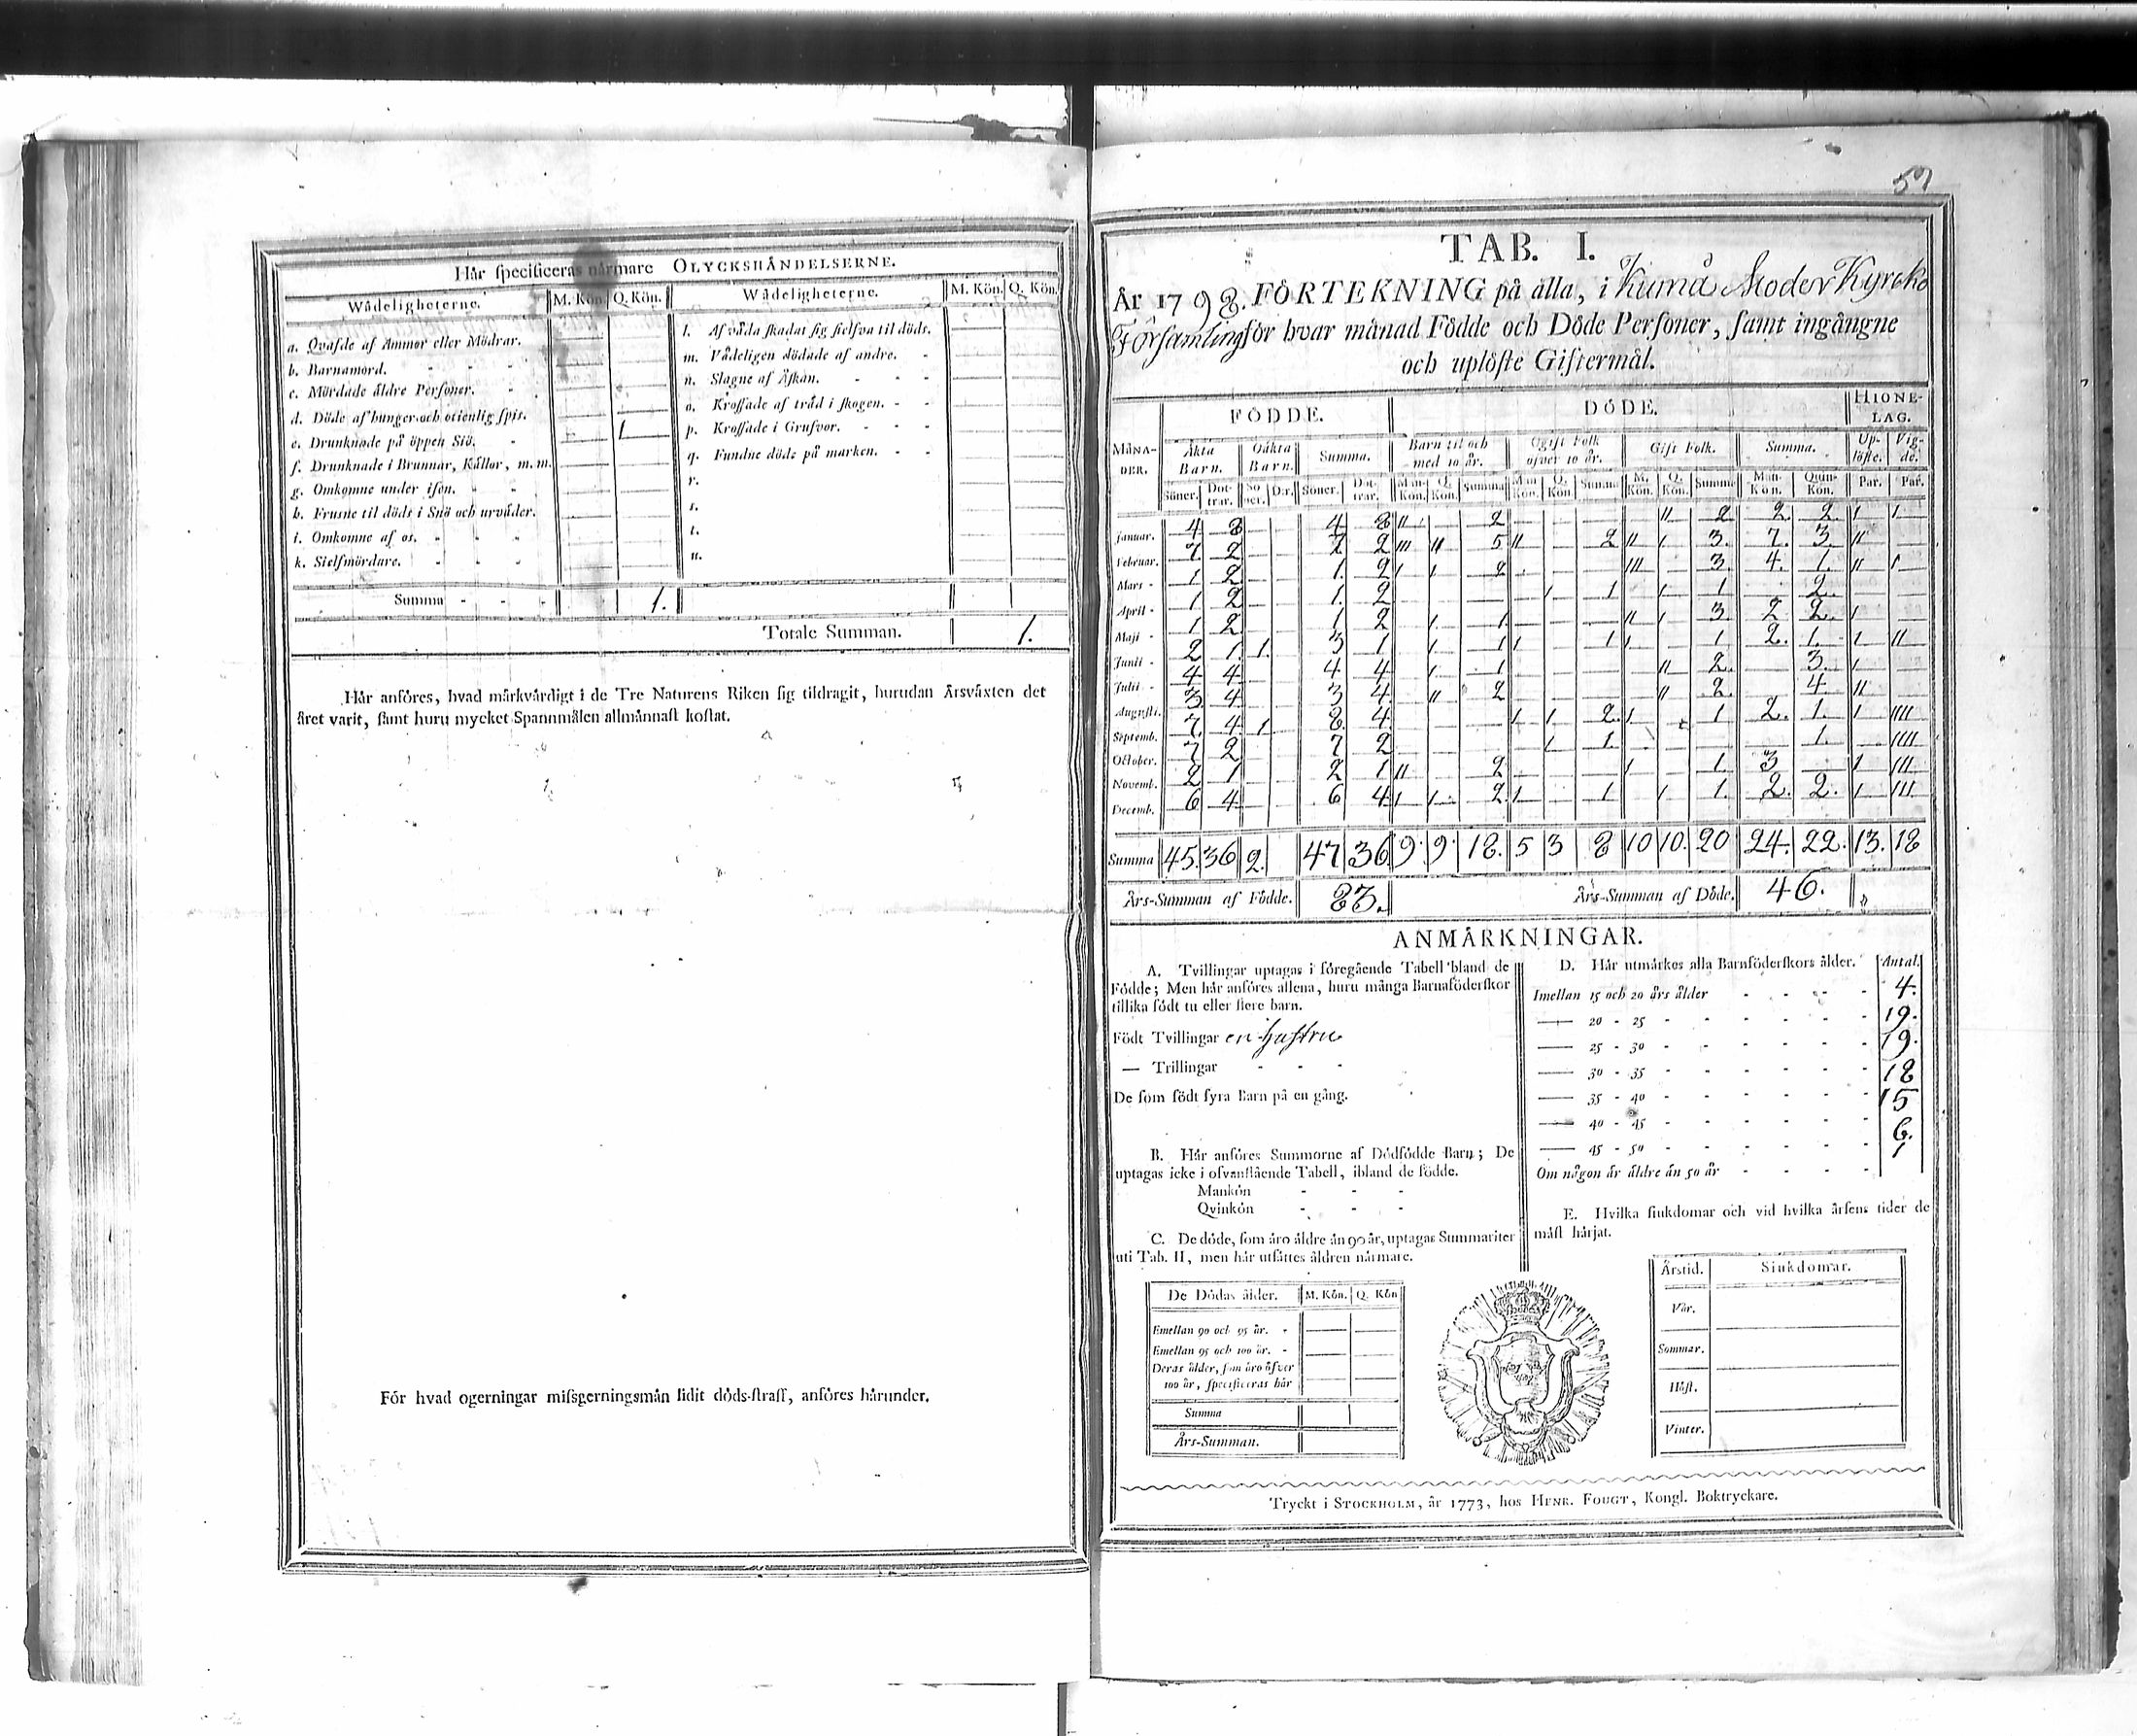 Hår specificeras nårmare OLYCKSHÅNDELSERNE.
Wådeligheterne. M. Kön. Q. Kön. Wådeligheterne. M. Kön. Q. Kön.
a. Qvafde af Ammor eller Mödrar.
b. Barnamord.
c. Mördade åldre Personer.
d. Döde af hunger och otienlig spis.
e. Drunknade på öppen Siö. 1
f. Drunknade i Brunnar, Kållor, m. m.
g. Omkomne under isen.
h. Frusne til döds i Snö och urvåder.
i. Omkomne af os.
k. Sielfmördare.
l. Af våda skadat sig sielfva til döds.
m. Vådeligen dödade af andre.
n. Slagne af Åskan.
o. Krossade af tråd i skogen.
p. Krossade i Grufvor.
q. Fundne döde på marken.
r.
s.
t.
u.
Summa 1.
Totale Summan. 1.
Hår anföres, hvad mårkvårdigt i de Tre Naturens Riken sig tildragit, hurudan Årsvåxten det
året varit, samt huru mycket Spannmålen allmånnast kostat.
För hvad ogerningar missgerningsmån lidit döds-straff, anföres hårunder.
TAB. I.
År 1798. FÖRTEKNING på alla, i Kumå Moder Kyrcko
Församling för hvar månad Födde och Döde Personer, samt ingångne
och uplöste Giftermål.
FÖDDE. DÖDE. HIONELAG.
MÅNADER. Åkta Barn. Oåkta Barn. Summa. Barn til och med 10 år. Ogift Folk öfver 10 år. Gift Folk. Summa. Uplöste. Vigde.
Söner. Dottrar. Söner. D:r. Söner. Dottrar. Man-Kön. Q. Kön. Summa Man Kön. Q. Kön Summa M. Kön. Q. Kön. Summa Man-Kön. Qvin-Kön. Par. Par.
Januar. 4 8 4 8 11 2 11 2 2. 2. 1 1
Februar. 7 2 7 2 111 11 5 11 2 11 1 3. 7. 3. 11
Mars 1 2 1. 2 1 1 2 111 3 4. 1. 11 1
April 1 2 1. 2 1 1 1 1 2.
Maji 1 2 1 2 1 1 11 1 3. 2 2. 1
Junii 2 1 1. 3 1 1 1 1 1 1 1 2. 1. 1 11
Julii 4 4 4 4 1 1 11 2. 3. 1
Augusti. 3 4 3 4. 11 2 11 2. 4 11
Septemb. 7. 4 1 8. 4. 1 1 2. 1 1 2. 1. 1 1111
October. 7 2 7 2 1 1. 1. 1111
Novemb. 2 1 2 1 11 2 1 1. 3 1 111
Decemb. 6 4 6 4 1 1 2. 1 1 1 1. 2. 2. 1 111
Summa 45. 36 2. 47 36 9. 9. 18. 5 3 8 10 10. 20 24. 22. 13. 18
Års-Summan af Födde. 83. Års-Summan af Döde. 46.
ANMÅRKNINGAR.
A. Tvillingar uptagas i föregående Tabell bland de
Födde; Men hår anföres allena, huru många Barnaföderskor
tillika födt tu eller flere barn.
Födt Tvillingar en hustru
— Trillingar
De som födt fyra Barn på en gång.
B. Hår anföres Summorne af Dödfödde Barn; De
uptagas icke i ofvanstående Tabell, ibland de födde.
Mankön
Qvinkön
C. De döde, som åro åldre ån 90 år, uptagas Summariter
uti Tab. II, men hår utsåttes åldren nårmare.
De Dödas ålder. M. Kön. Q. Kön
Emellan 90 och 95 år.
Emellan 95 och 100 år.
Deras ålder, som åro öfver
100 år, specificeras hår
Summa
Års-Summan.
D. Hår utmårkes alla Barnföderskors ålder. Antal.
Imellan 15 och 20 års ålder 4.
— 20 - 25 19.
— 25 - 30 19.
— 30 - 35 18
— 35 - 40 15
— 40 - 45 6.
— 45 - 50 1
Om någon år åldre ån 50 år
E. Hvilka siukdomar och vid hvilka årsens tider de
måst hårjat.
Årstid. Siukdomar.
Vår.
Sommar.
Höst.
Vinter.
Tryckt i STOCKHOLM, år 1773, hos HENR. FOUGT, Kongl. Boktryckare.